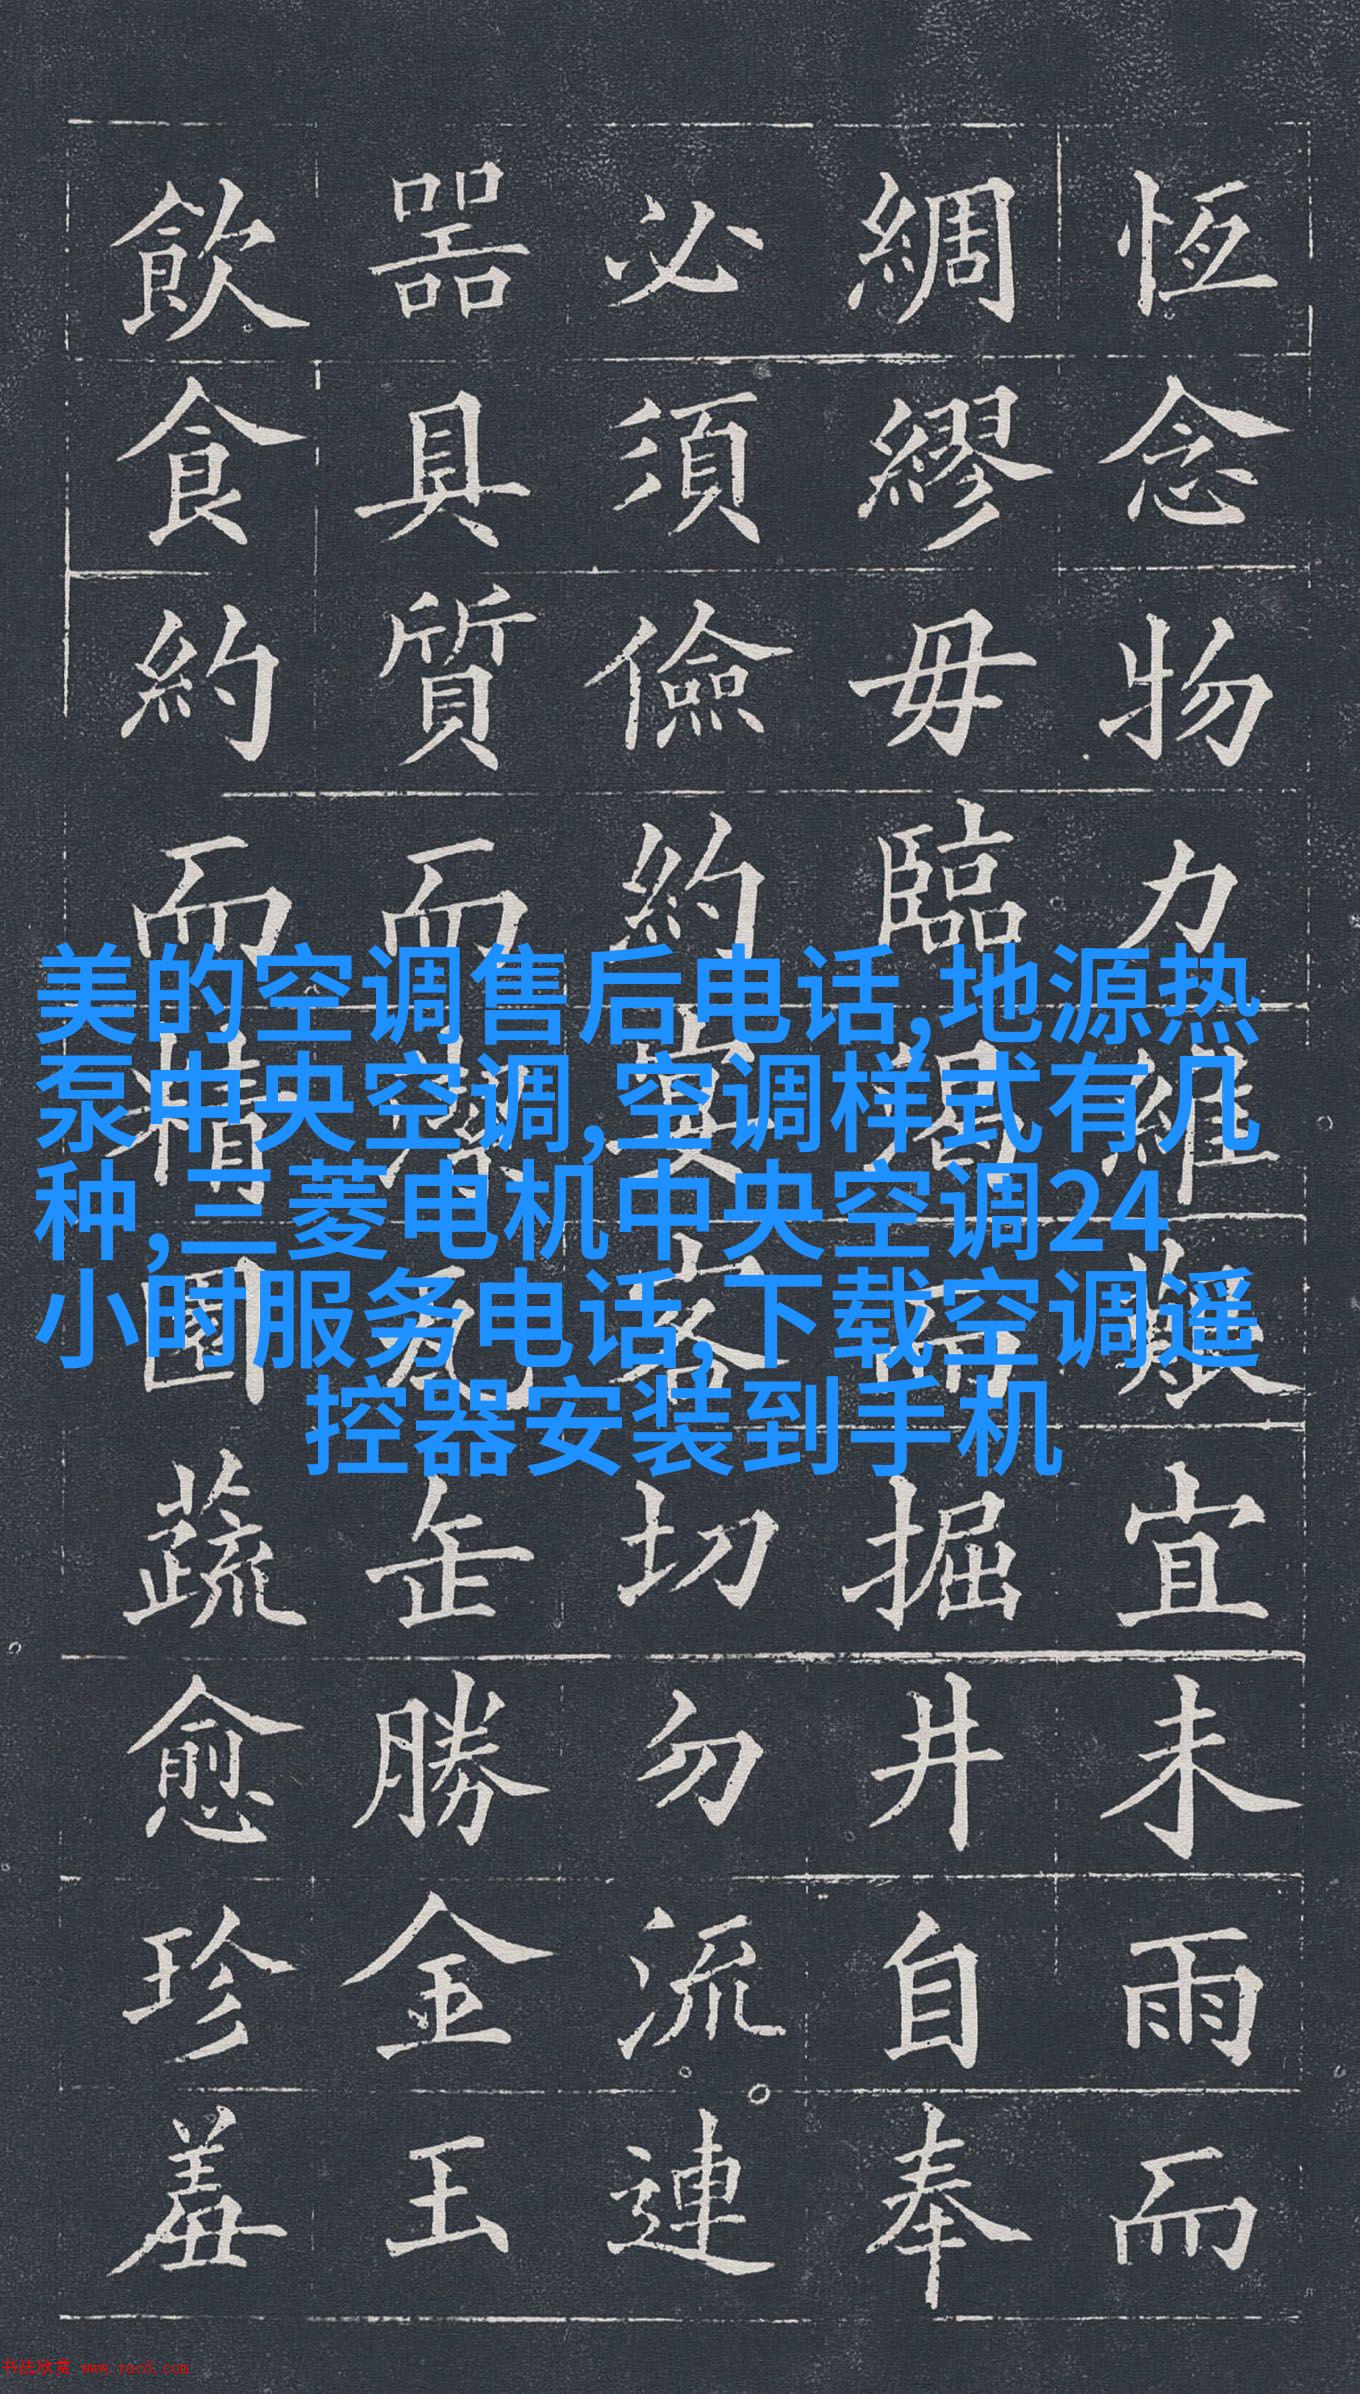 恆念物力維艱宜未雨而
綢繆毋臨渴而掘井自奉
必須儉約宴客切勿流連
器具質而潔瓦缶勝金玉
飲食約而精園蔬愈珍羞
美的空调售后电话,地源热
泵中央空调,空调样式有几
种,三菱电机中央空调24
小时服务电话,下载空调遥
控器安装到手机
书法欣赏 www.yac8.com